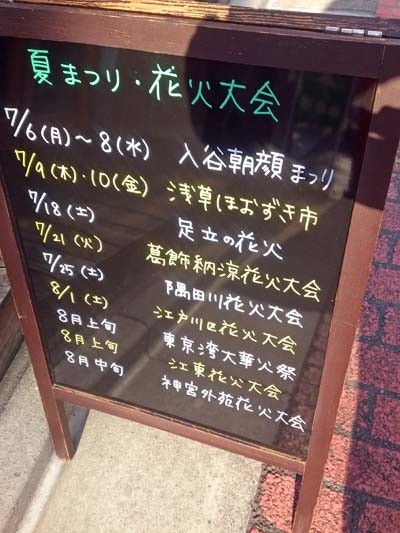 夏まつり・花火大会
7/6(月)〜8(水) 入谷朝顔まつり
7/9(木)・10(金) 浅草ほおずき市
7/18(土) 足立の花火
7/21(火) 葛飾納涼花火大会
7/25(土) 隅田川花火大会
8/1(土) 江戸川区花火大会
8月上旬 東京湾大華火祭
8月上旬 江東花火大会
8月中旬 神宮外苑花火大会